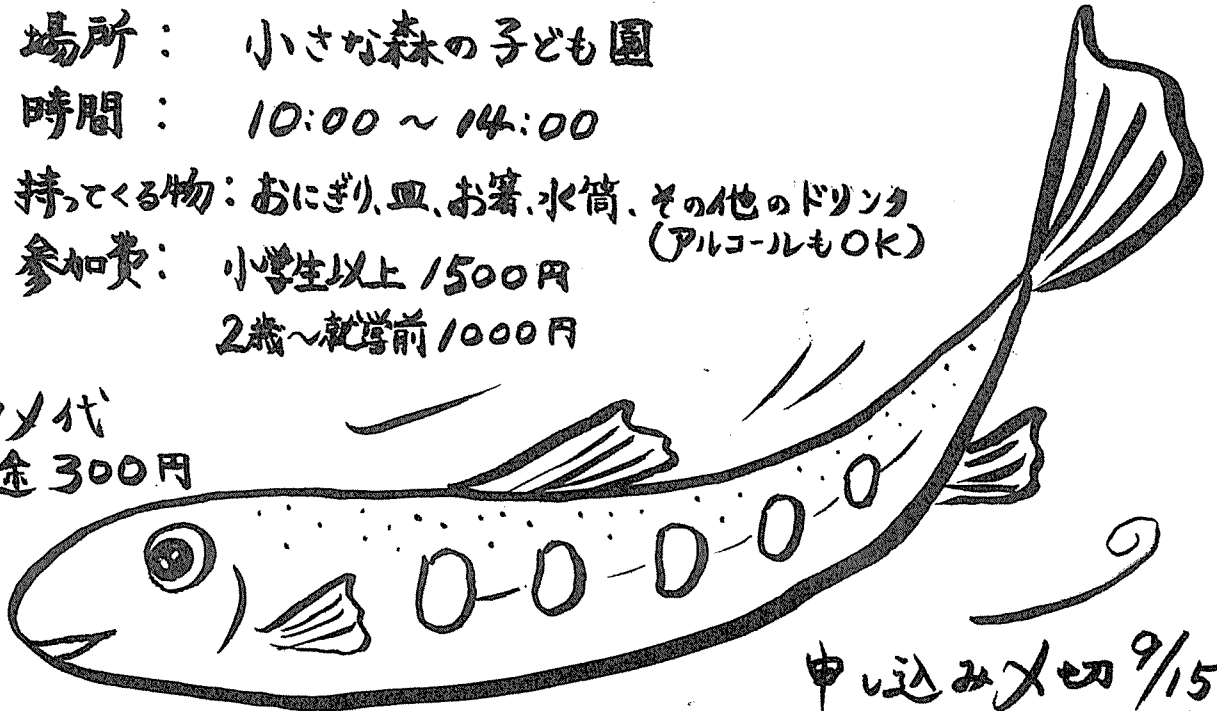 場所： 小さな森の子ども園
時間： 10:00 ～ 14:00
持ってくる物：おにぎり、皿、お箸、水筒、その他のドリンク
（アルコールもOK）
参加費： 小学生以上 1500円
2歳～就学前 1000円
メ代
途 300円
申し込み〆切 9/15